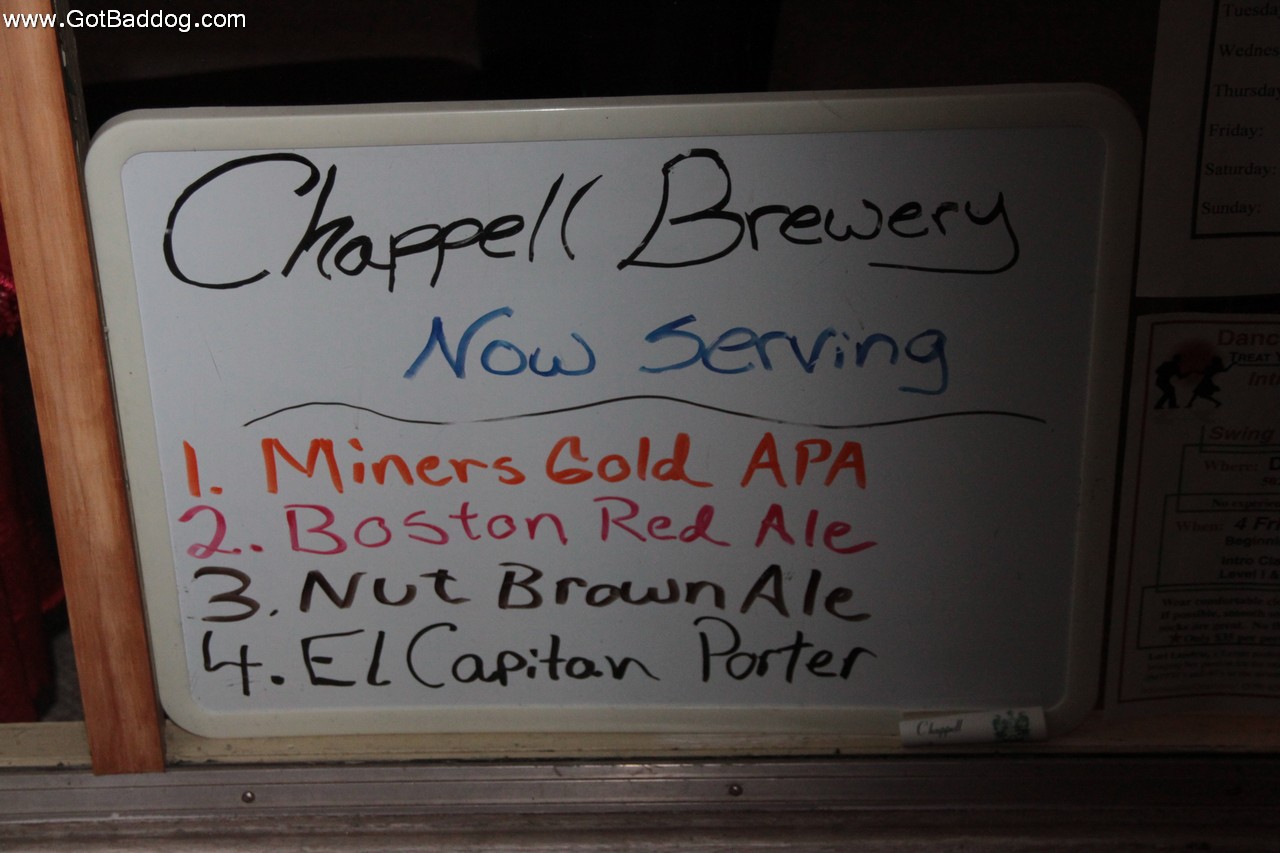 www.GotBaddog.com
Chappell Brewery
Now Serving
1. Miners Gold APA
2. Boston Red Ale
3. Nut Brown Ale
4. El Capitan Porter
Chappell
Tuesda
Wednes
Thursday
Friday:
Saturday:
Sunday:
Danc
TREAT
Int
Swing
Where:
No experien
When: 4 Fr
Beginni
Intro Cla
Level I &